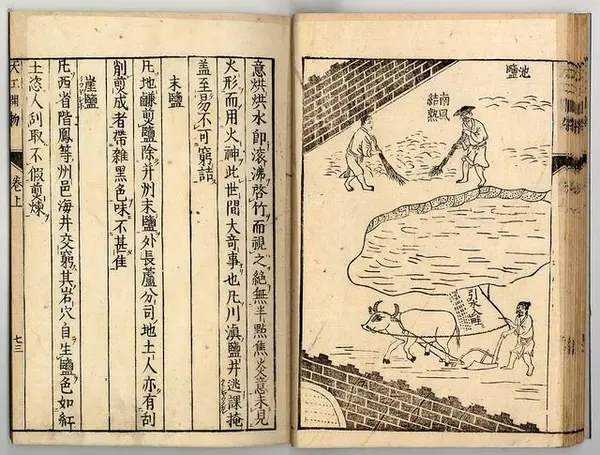 池鹽
南風
結熟
引水入畦
意烘烘水即滾沸啓竹而視之絕無半點焦炎意未見
火形而用火神此世間大奇事也凡川滇鹽井逃課掩
蓋至易不可窮詰
末鹽
凡地鹻煎鹽除并州末鹽外長蘆分司地土人亦有刮
削煎成者帶雜黑色味不甚佳
崖鹽
凡西省階鳳等州邑海井交窮其岩穴自生鹽色如紅
土恣人刮取不假煎煉
天工開物 卷上 七三